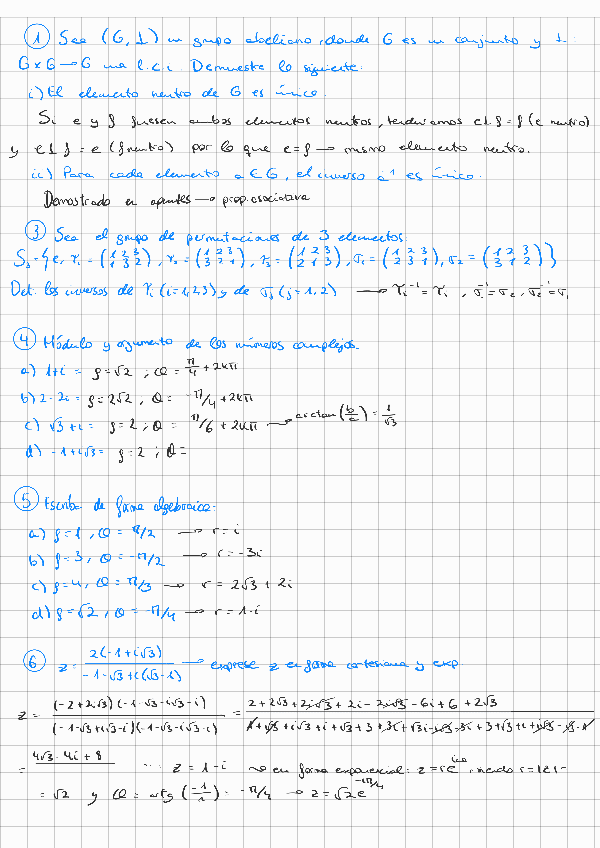 ① Sea (G, ⊥) un grupo abeliano, donde G es un conjunto y ⊥:
G×G → G una l.c.i. Demuestre lo siguiente:
i) El elemento neutro de G es único.
Si e y f fuesen ambos elementos neutros, tendríamos e⊥f = f (e neutro)
y e⊥f = e (f neutro) por lo que e=f → mismo elemento neutro.
ii) Para cada elemento a ∈ G, el inverso a⁻¹ es único.
Demostrado en apuntes → prop. asociativa
③ Sea el grupo de permutaciones de 3 elementos.
S₃ = {e, τ₁ = (1 2 3 / 1 3 2), τ₂ = (1 2 3 / 3 2 1), τ₃ = (1 2 3 / 2 1 3), σ₁ = (1 2 3 / 2 3 1), σ₂ = (1 2 3 / 3 1 2)}
Det. los inversos de τᵢ (i=1,2,3) y de σⱼ (j=1,2) → τᵢ⁻¹ = τᵢ, σ₁⁻¹ = σ₂, σ₂⁻¹ = σ₁
④ Módulo y argumento de los números complejos.
a) 1+i = ρ=√2 ; θ = π/4 + 2kπ
b) 2-2i = ρ=2√2, θ = -π/4 + 2kπ
c) √3+i = ρ=2 ; θ = π/6 + 2kπ → arctan(b/a) = 1/√3
d) -1+i√3 = ρ=2 ; θ =
⑤ Escriba de forma algebraica:
a) ρ=1, θ = π/2 → r = i
b) ρ=3, θ = -π/2 → r = -3i
c) ρ=4, θ = π/3 → r = 2√3 + 2i
d) ρ=√2, θ = -π/4 → r = 1-i
⑥ z = 2(-1+i√3) / -1-√3+i(√3-1) → exprese z en forma cartesiana y exp.
z = (-2+2i√3)(-1-√3-i√3-i) / (-1-√3+i√3-i)(-1-√3-i√3-i) = 2+2√3+2i√3+2i-2i√3-6i+6+2√3
= 4√3-4i+8 ... z = 1-i → en forma exponencial: z=re^iθ, siendo r=|z|=
= √2 y θ = artg(-1/1) = -π/4 → z=√2e^-iπ/4